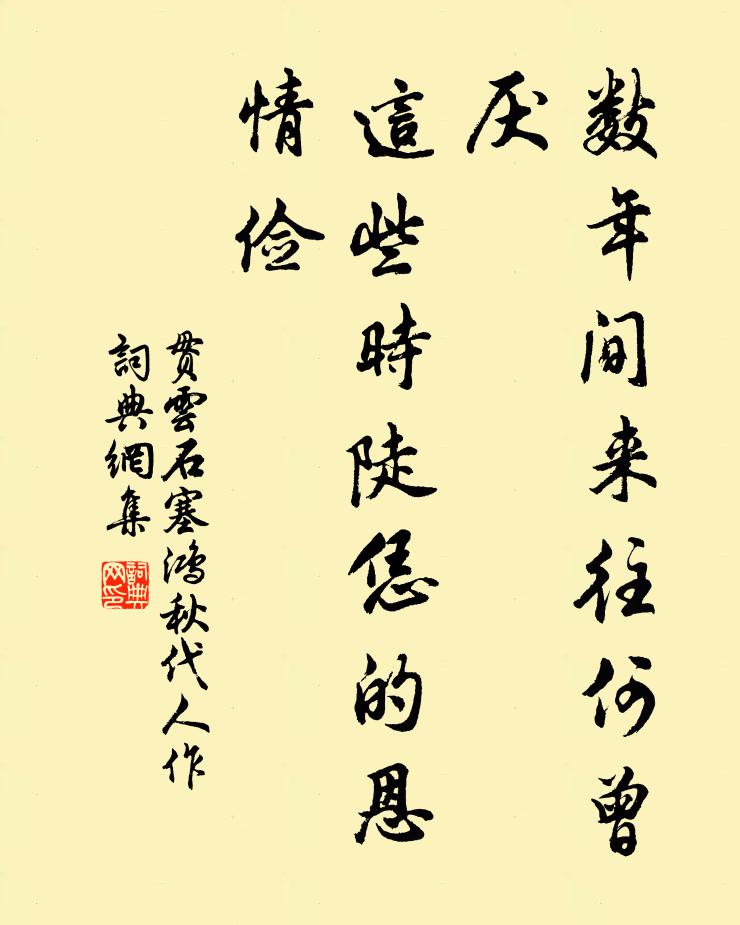 数年间来往何曾
厌
這些時陡恁的恩
情俭
贯雲石塞鸿秋代人作
詞典網集
詞典
网印